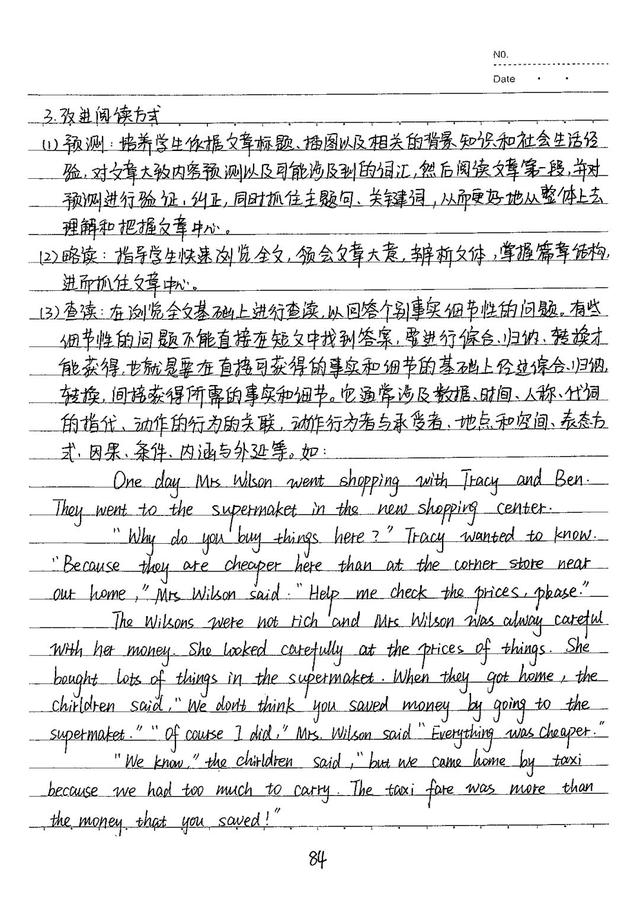 NO.
Date
3.改进阅读方式
(1)预测:培养学生依据文章标题、插图以及相关的背景知识和社会生活经
验,对文章大致内容预测以及可能涉及到的词汇,然后阅读文章第一段,并对
预测进行验证、纠正,同时抓住主题句、关键词,从而更好地从整体上去
理解和把握文章中心。
(2)略读:指导学生快速浏览全文,领会文章大意,辨析文体,掌握篇章结构,
进而抓住文章中心。
(3)查读:在浏览全文基础上进行查读,以回答个别事实细节性的问题。有些
细节性的问题不能直接在短文中找到答案,要进行综合、归纳、转换才
能获得,也就是要在直接可获得的事实和细节的基础上经过综合、归纳、
转换,间接获得所需的事实和细节。它通常涉及数据、时间、人称、代词
的指代、动作的行为的关联,动作行为者与承受者、地点和空间、表态方
式、因果、条件、内涵与外延等。如:
One day Mrs Wilson went shopping with Tracy and Ben.
They went to the supermaket in the new shopping center.
"Why do you buy things here?" Tracy wanted to know.
"Because they are cheaper here than at the corner store near
our home," Mrs Wilson said. "Help me check the prices, please."
The Wilsons were not rich and Mrs Wilson was alway careful
with her money. She looked carefully at the prices of things. She
bought lots of things in the supermaket. When they got home, the
chirldren said, "We don't think you saved money by going to the
supermaket." "Of course I did," Mrs. Wilson said "Everything was cheaper."
"We know," the chirldren said, "but we came home by taxi
because we had too much to carry. The taxi fare was more than
the money that you saved!"
84